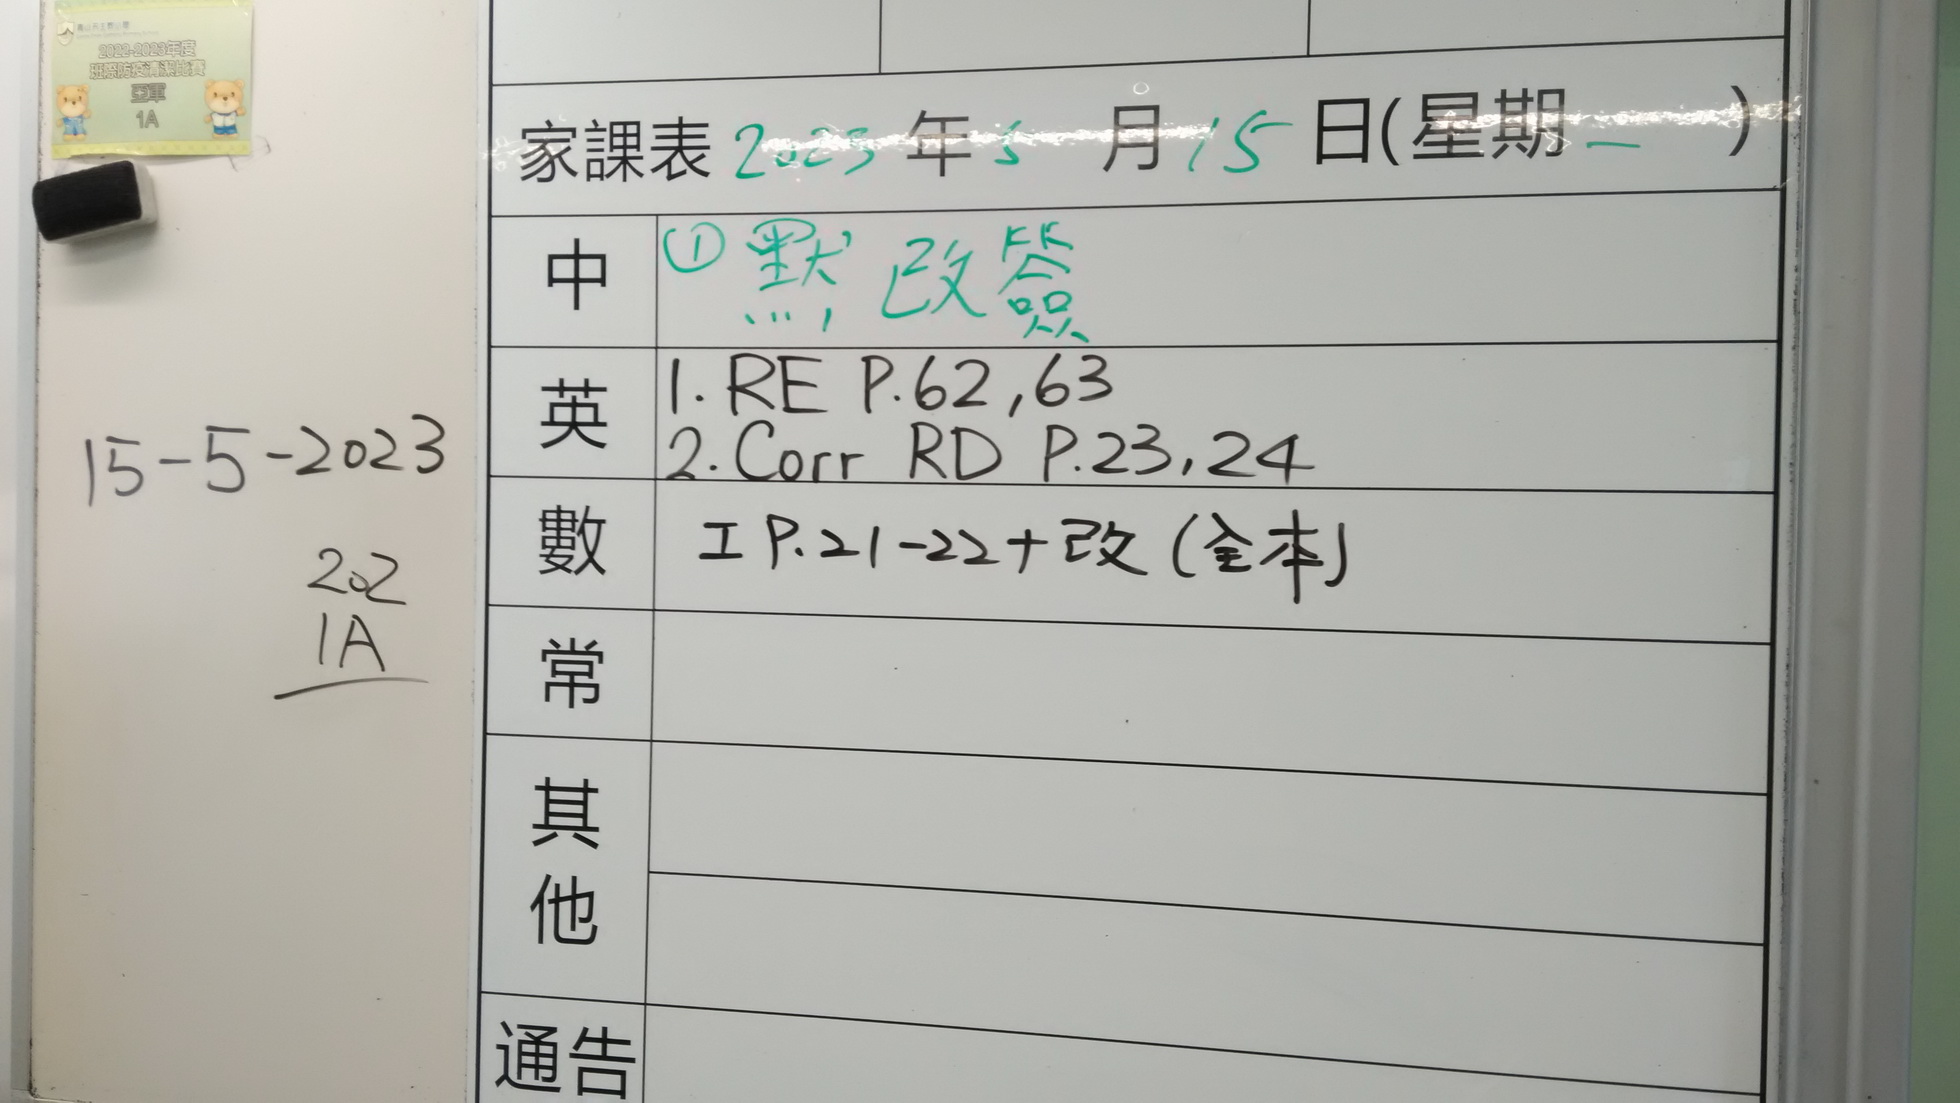 2022-2023年度
班際防疫清潔比賽
亞軍
1A
家課表 2023 年 5 月 15 日(星期一)
中 ① 默改簽
英 1. RE P.62,63
2. Corr RD P.23,24
數 工 P.21-22+改(全本)
常
其他
通告
15-5-2023
202
1A